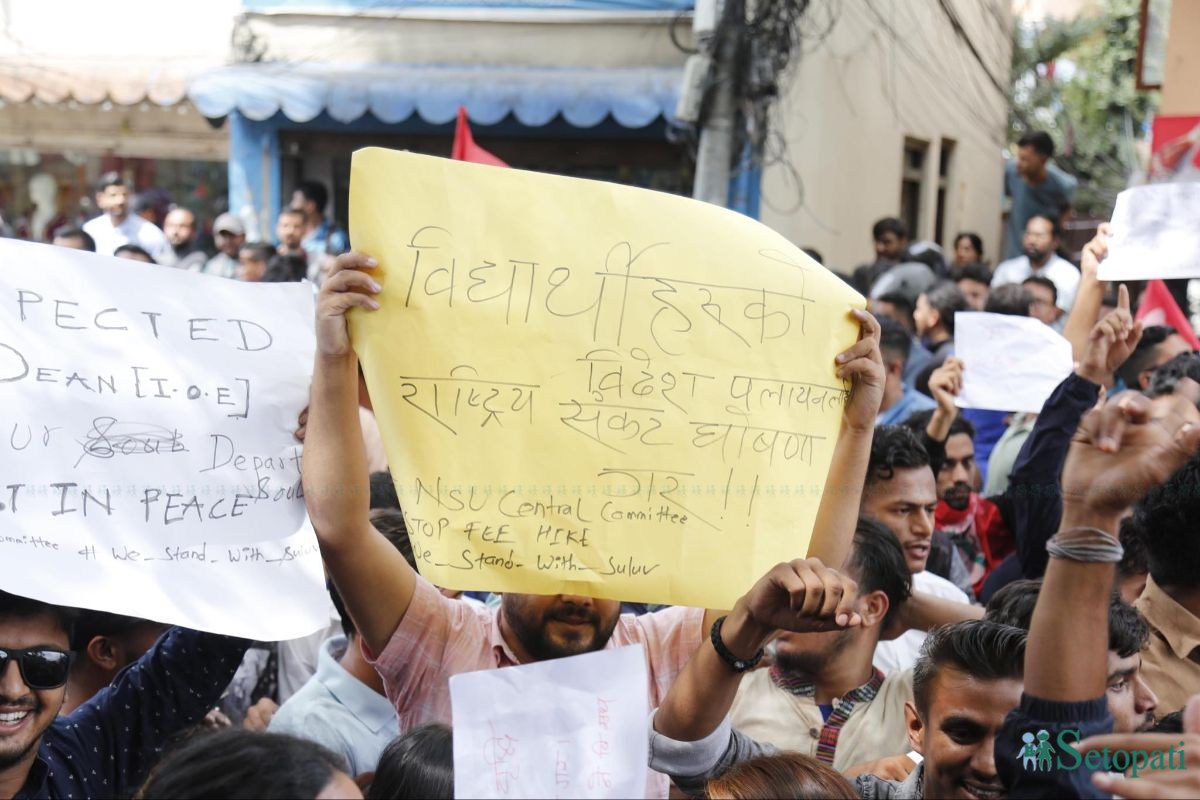 PECTED
DEAN [I.O.E]
ur Depart
T IN PEACE
ommittee # We_Stand_With_Su
विद्यार्थीहरूको
विदेश पलायनलाई
राष्ट्रिय संकट घोषणा
गर!!
NSU Central Committee
STOP FEE HIKE
We_Stand_With_Suluv
Setopati